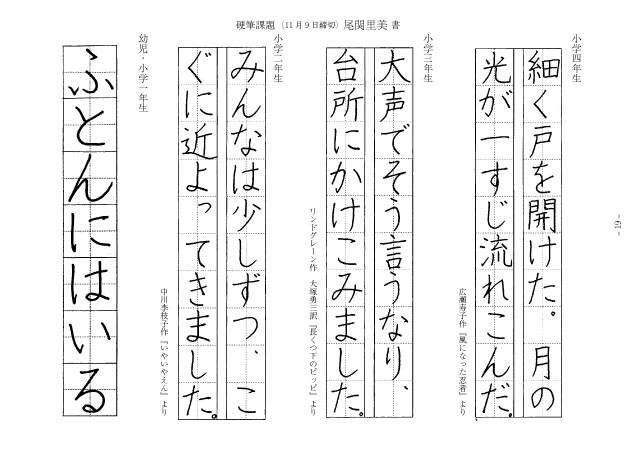 硬筆課題(11月9日締切)尾関里美 書
小学四年生
細く戸を開けた。 月の
光が一すじ流れこんだ。
広瀬寿子作『風になった忍者』より
小学三年生
大声でそう言うなり、
台所にかけこみました。
リンドグレーン作 大塚勇三訳『長くつ下のピッピ』より
小学二年生
みんなは少しずつ、こ
ぐに近よってきました。
中川李枝子作『いやいやえん』より
幼児・小学一年生
ふとんにはいる
- 19 -